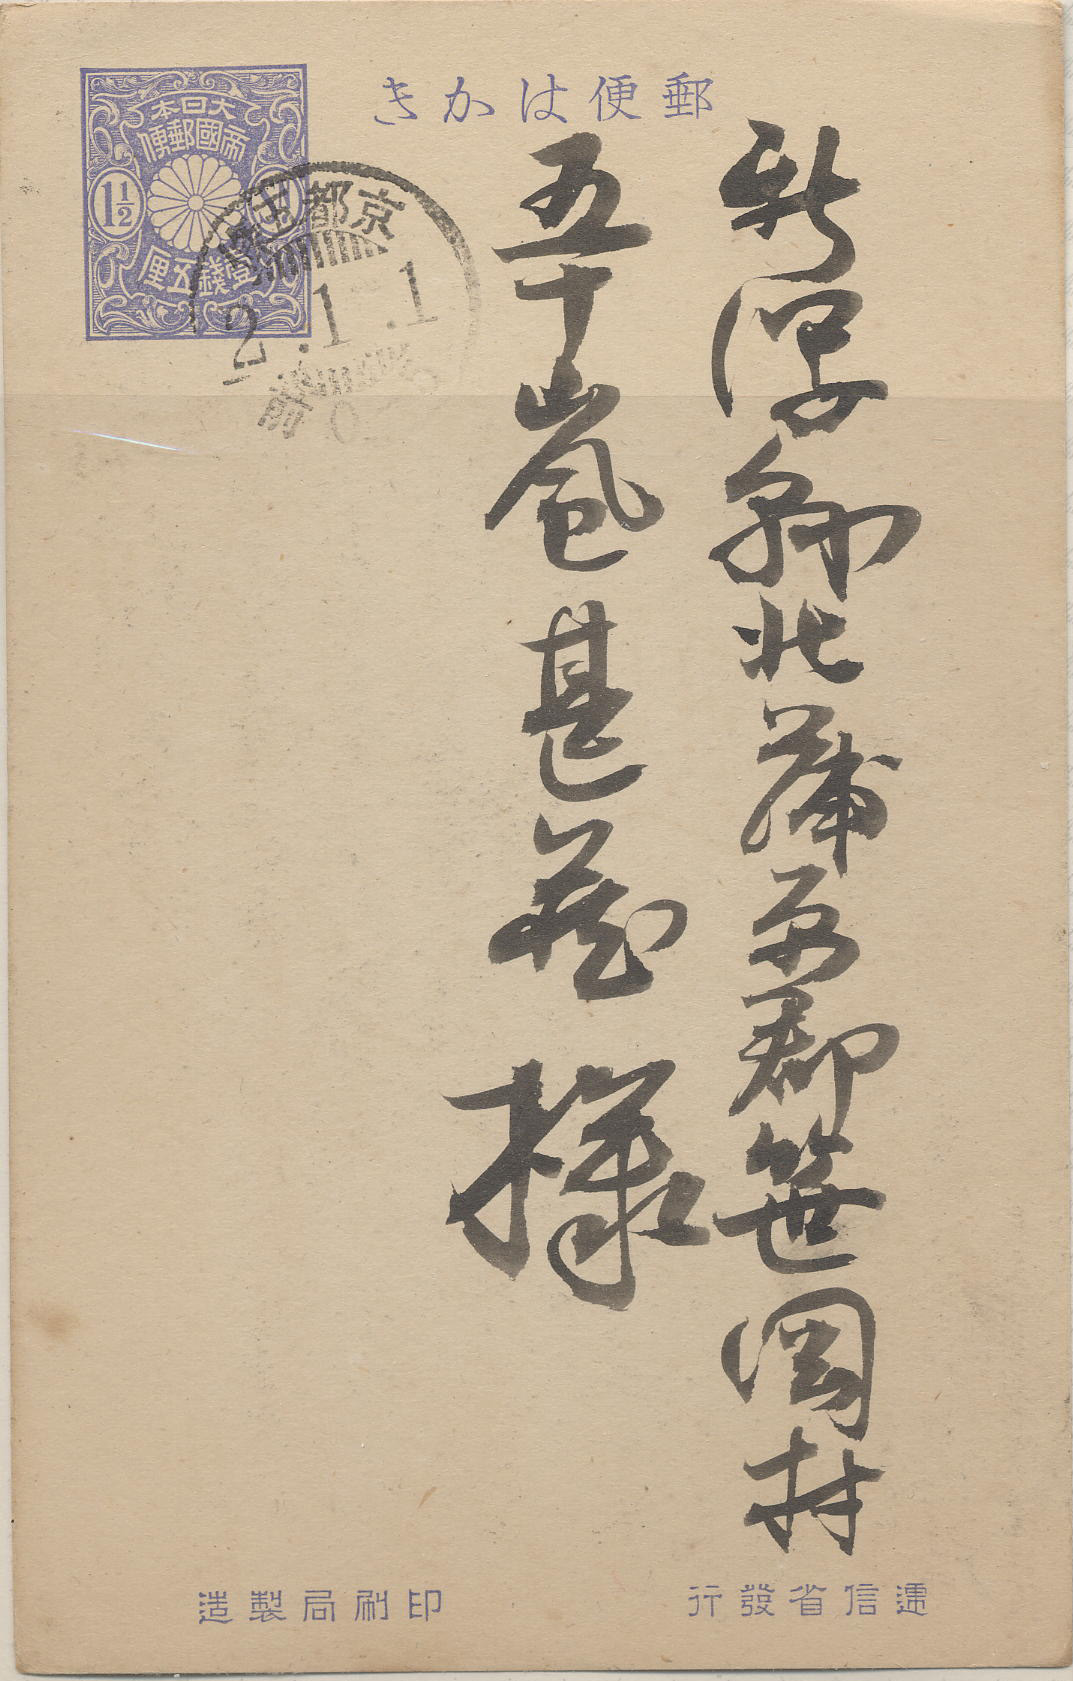 郵便はかき
大日本
帝國郵便
1½
壹錢五厘
京都五
2.1.1
前0
新潟縣北蒲原郡笹岡村
五十嵐甚蔵様
遞信省發行
印刷局製造